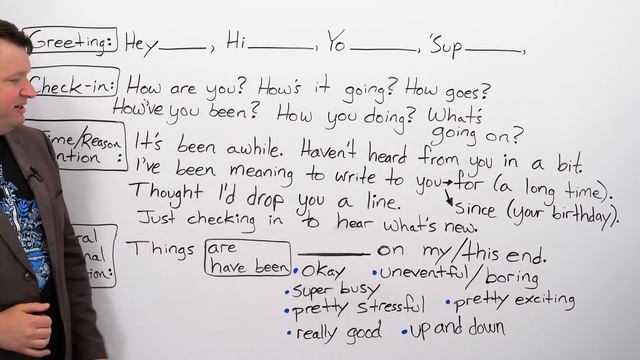 Greeting: Hey____, Hi____, Yo____, 'Sup____,
Check-in: How are you? How's it going? How goes?
How've you been? How you doing? What's
going on?
ime/Reason It's been awhile. Haven't heard from you in a bit.
ention : I've been meaning to write to you → for (a long time).
Thought I'd drop you a line. since (your birthday).
Just checking in to hear what's new.
Things are ____ on my/this end.
have been
• okay • uneventful/boring
• super busy
• pretty stressful • pretty exciting
• really good • up and down